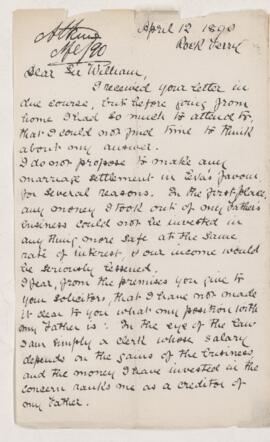 Atkins
Ap/90
April 12 1890
Rock Ferry
Dear Sir William,
I received your letter in
due course, but before going from
home I had so much to attend to,
that I could not find time to think
about my answer.
I do not propose to make any
marriage settlement in Eva's favour,
for several reasons. In the first place,
any money I took out of my Father's
business could not be invested in
any thing more safe at the same
rate of interest, & our income would
be seriously lessened.
I fear, from the premises you give to
your solicitors, that I have not made
it clear to you what my position with
my Father is: In the eye of the law
I am simply a clerk whose salary
depends on the gains of the business,
and the money I have invested in the
concern ranks me as a creditor of
my Father.